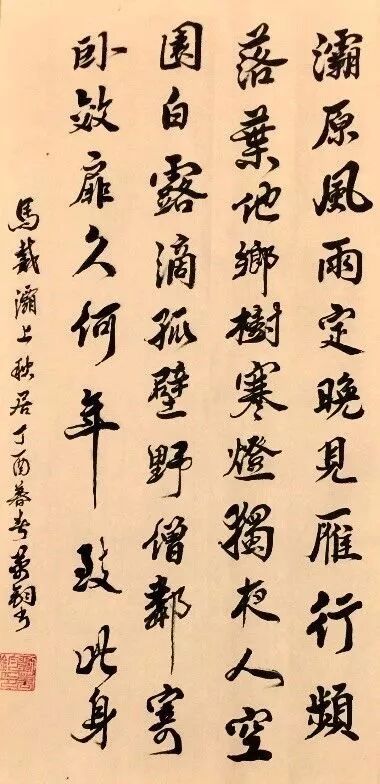 灞原風雨定晚見雁行頻
落葉他鄉樹寒燈獨夜人空
園白露滴孤壁野僧鄰寄
卧效扉久何年致此身
馬戴灞上秋居丁酉暮春